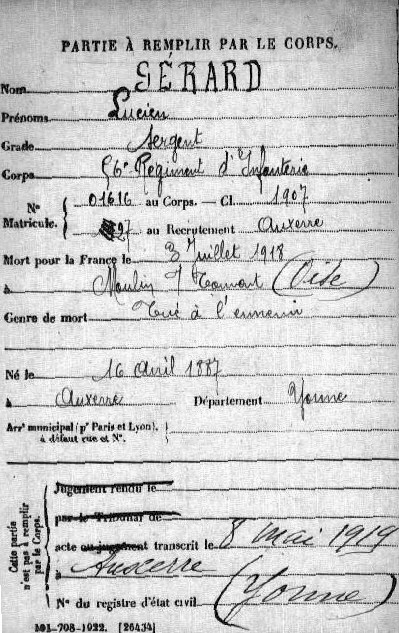 PARTIE À REMPLIR PAR LE CORPS.
Nom GÉRARD
Prénoms Lucien
Grade Sergent
Corps 56e Régiment d'Infanterie
N° Matricule. 01616 au Corps. — Cl. 1907
27 au Recrutement Auxerre
Mort pour la France le 3 Juillet 1918
à Moulin s/ (Oise)
Genre de mort Tué à l'ennemi
Né le 16 Avril 1887
à Auxerre Département Yonne
Arrt municipal (pr Paris et Lyon),
à défaut rue et N°.
Cette partie n'est pas à remplir par le Corps.
Jugement rendu le
par le Tribunal de
acte ou jugement transcrit le 8 mai 1919
à Auxerre
(Yonne)
N° du registre d'état civil
-708-1922. [26434]